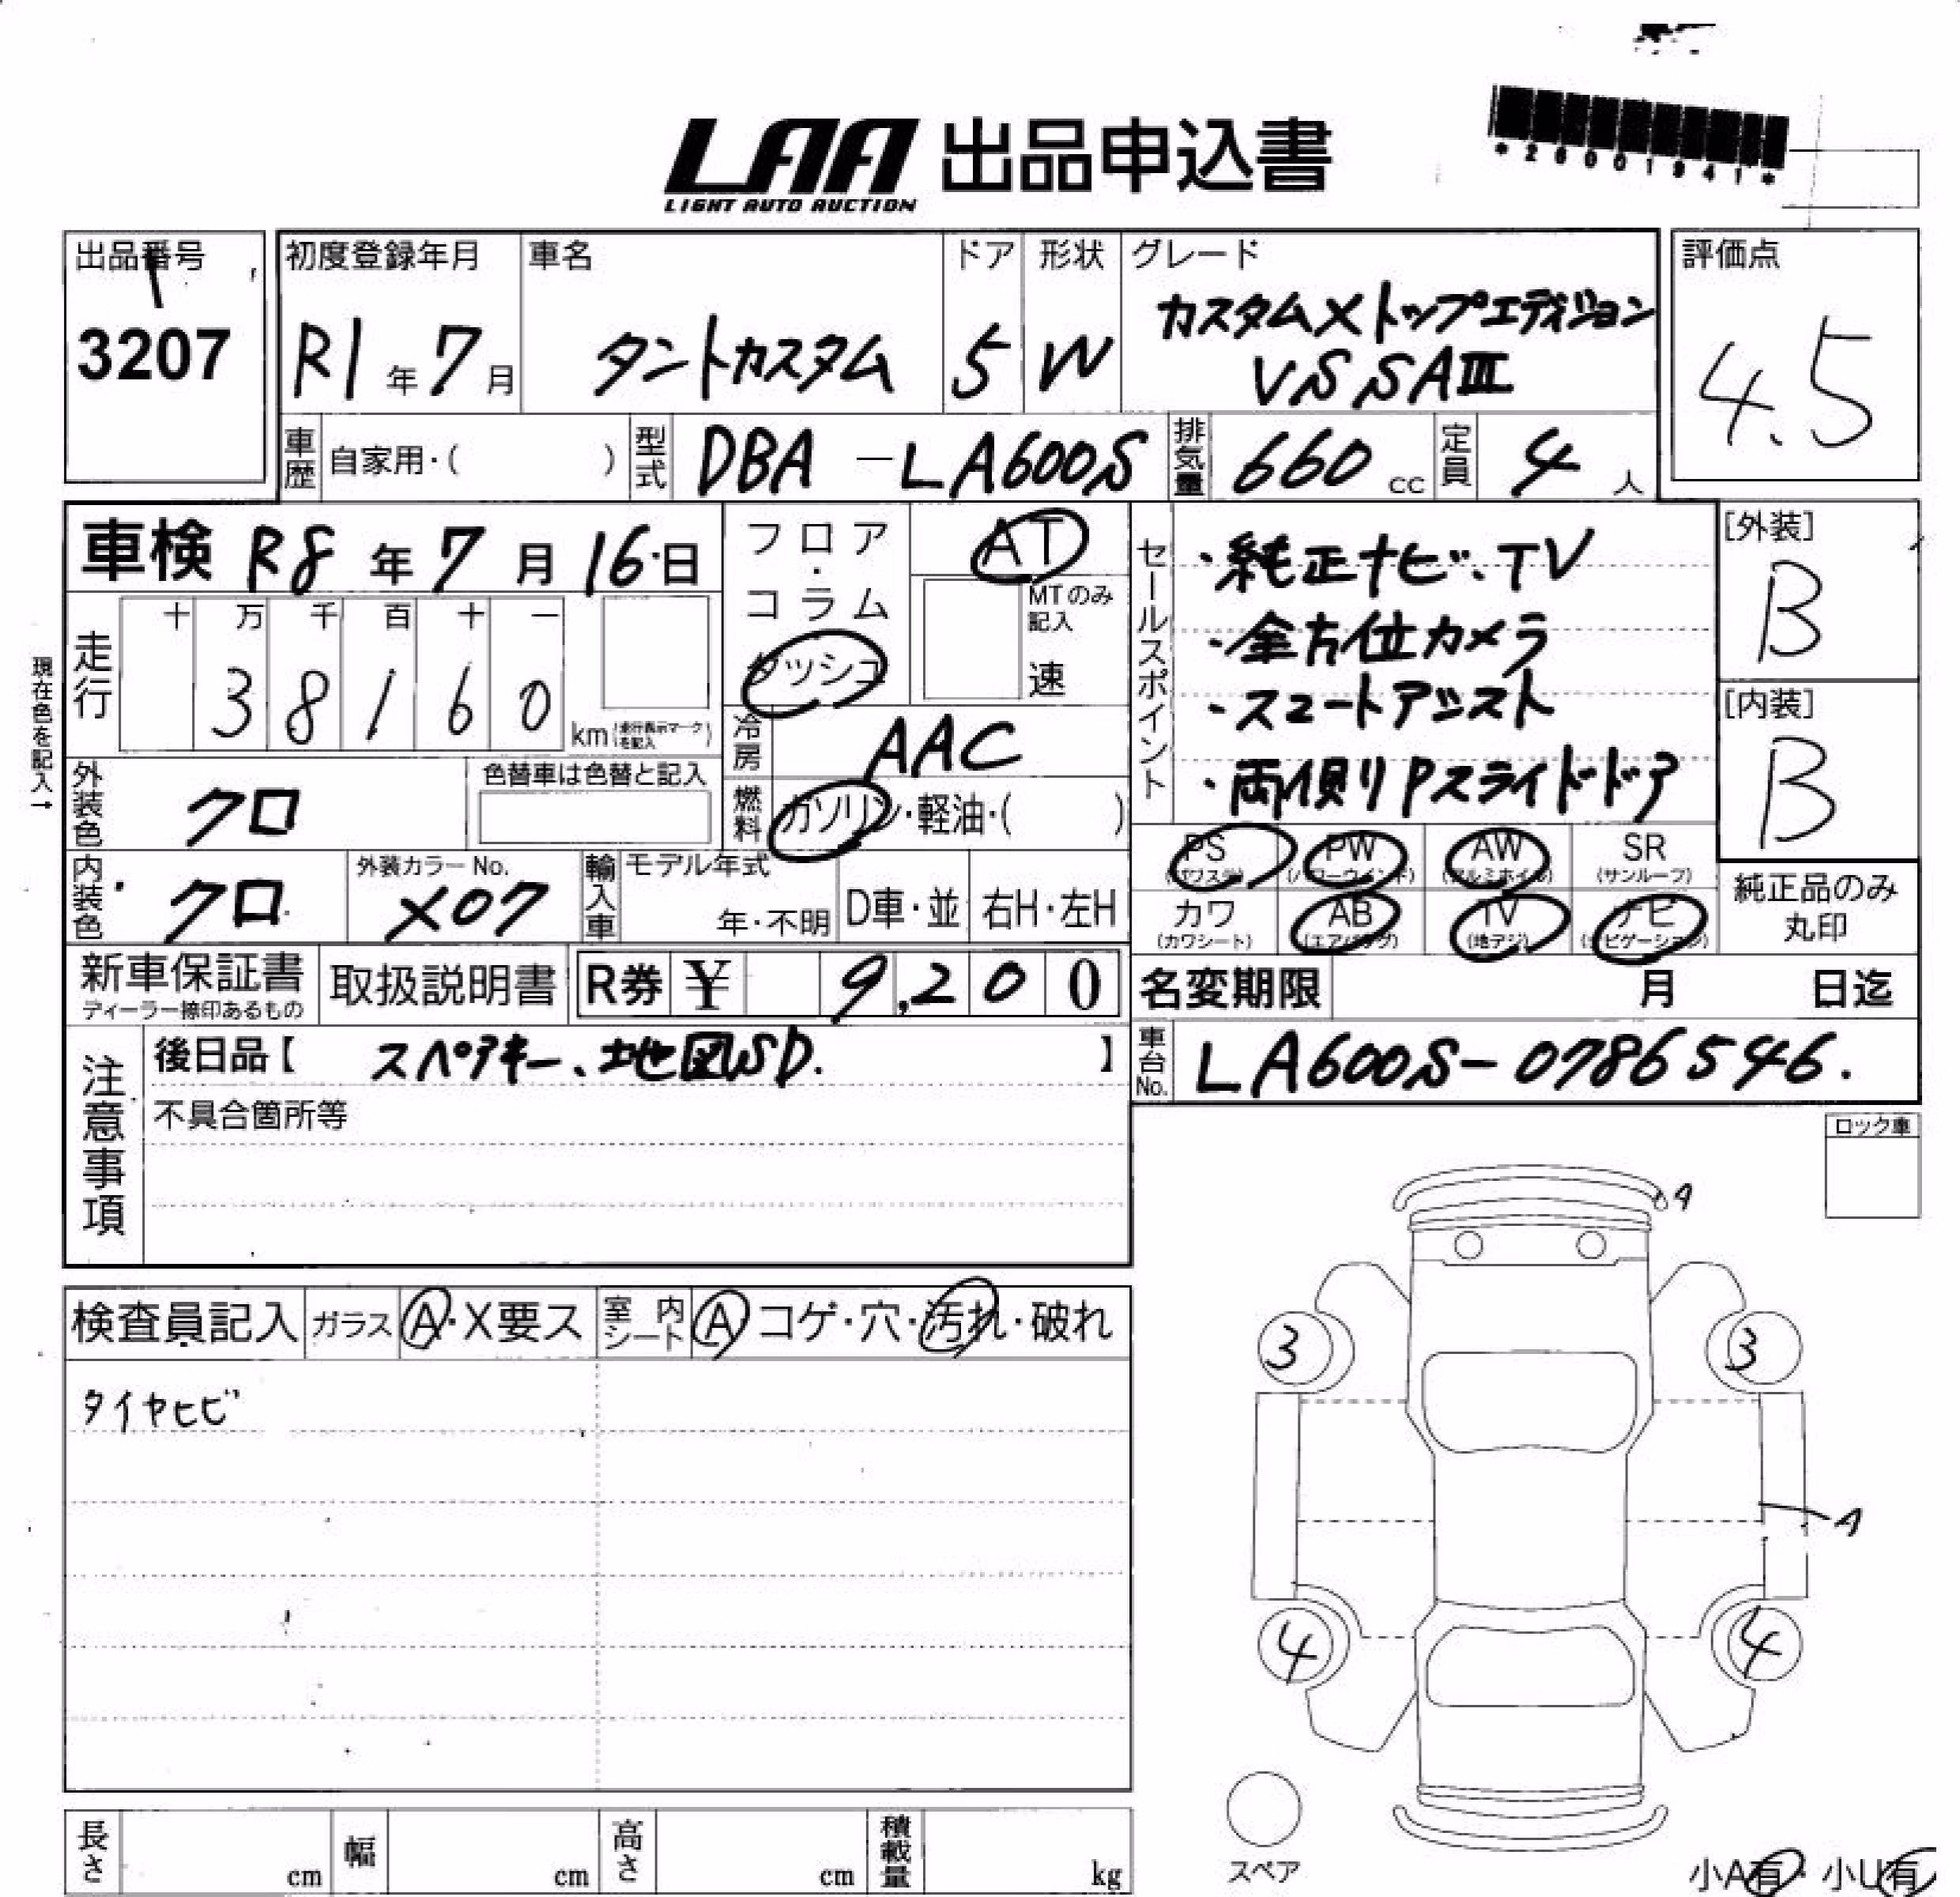 *26001941*
LAA 出品申込書
LIGHT AUTO AUCTION
出品番号 初度登録年月 車名 ドア 形状 グレード 評価点
3207 R1年7月 タントカスタム 5 W カスタムXトップエディション
VS SAⅢ
4.5
車歴 自家用・( ) 型式 DBA-LA600S 排気量 660 cc 定員 4 人
車検 R8年7月16日 フロア・コラム ダッシュ AT
MTのみ記入
速
セールスポイント
・純正ナビ、TV
・全方位カメラ
・スマートアシスト
・両側Pスライドドア
[外装]
B
[内装]
B
現在色を記入→
走行 十 万 千 百 十 一
3 8 1 6 0 km (走行表示マークを記入)
冷房 AAC
外装色 クロ 色替車は色替と記入 燃料 ガソリン・軽油・( )
PS PW AW SR
(パワステ) (パワーウインド) (アルミホイル) (サンルーフ)
カワ AB TV ナビ
(カワシート) (エアバッグ) (地デジ) (ナビゲーション)
純正品のみ
丸印
内装色 クロ 外装カラーNo. X07 輸入車 モデル年式 年・不明 D車・並 右H・左H
新車保証書 取扱説明書 R券 ¥ 9,200
ディーラー捺印あるもの
名変期限 月 日迄
注意事項
後日品【 スペアキー、地図SD. 】
車台No. LA600S-0786546.
不具合箇所等
ロック車
A
検査員記入 ガラス A・X要ス 室内シート A コゲ・穴・汚れ・破れ
3 3
タイヤヒビ
A
4 4
スペア
長さ cm 幅 cm 高さ cm 積載量 kg
小A有・小U有